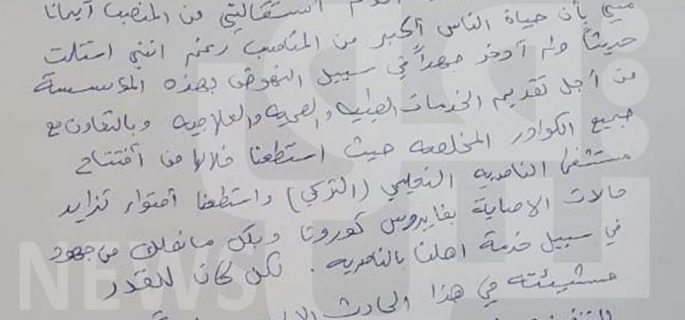 استقالتي من المنصب أيمانا
مني بأن حياة الناس أكبر من المناصب رغم انني استلمت
حديثاً ولم أدخر جهداً في سبيل النهوض بهذه المؤسسة
من أجل تقديم الخدمات الطبيه والصحيه والعلاجيه وبالتعاون مع
جميع الكوادر المخلصه حيث استطعنا خلالها من أفتتاح
مستشفى الناصريه التعليمي (التركي) واستطعنا أحتواء تزايد
حالات الاصابة بفايروس كورونا وبكل مانملك من جهود
في سبيل خدمة اهلنا بالناصريه . لكن كان للقدر
مشيئته في هذا الحادث
NEWS